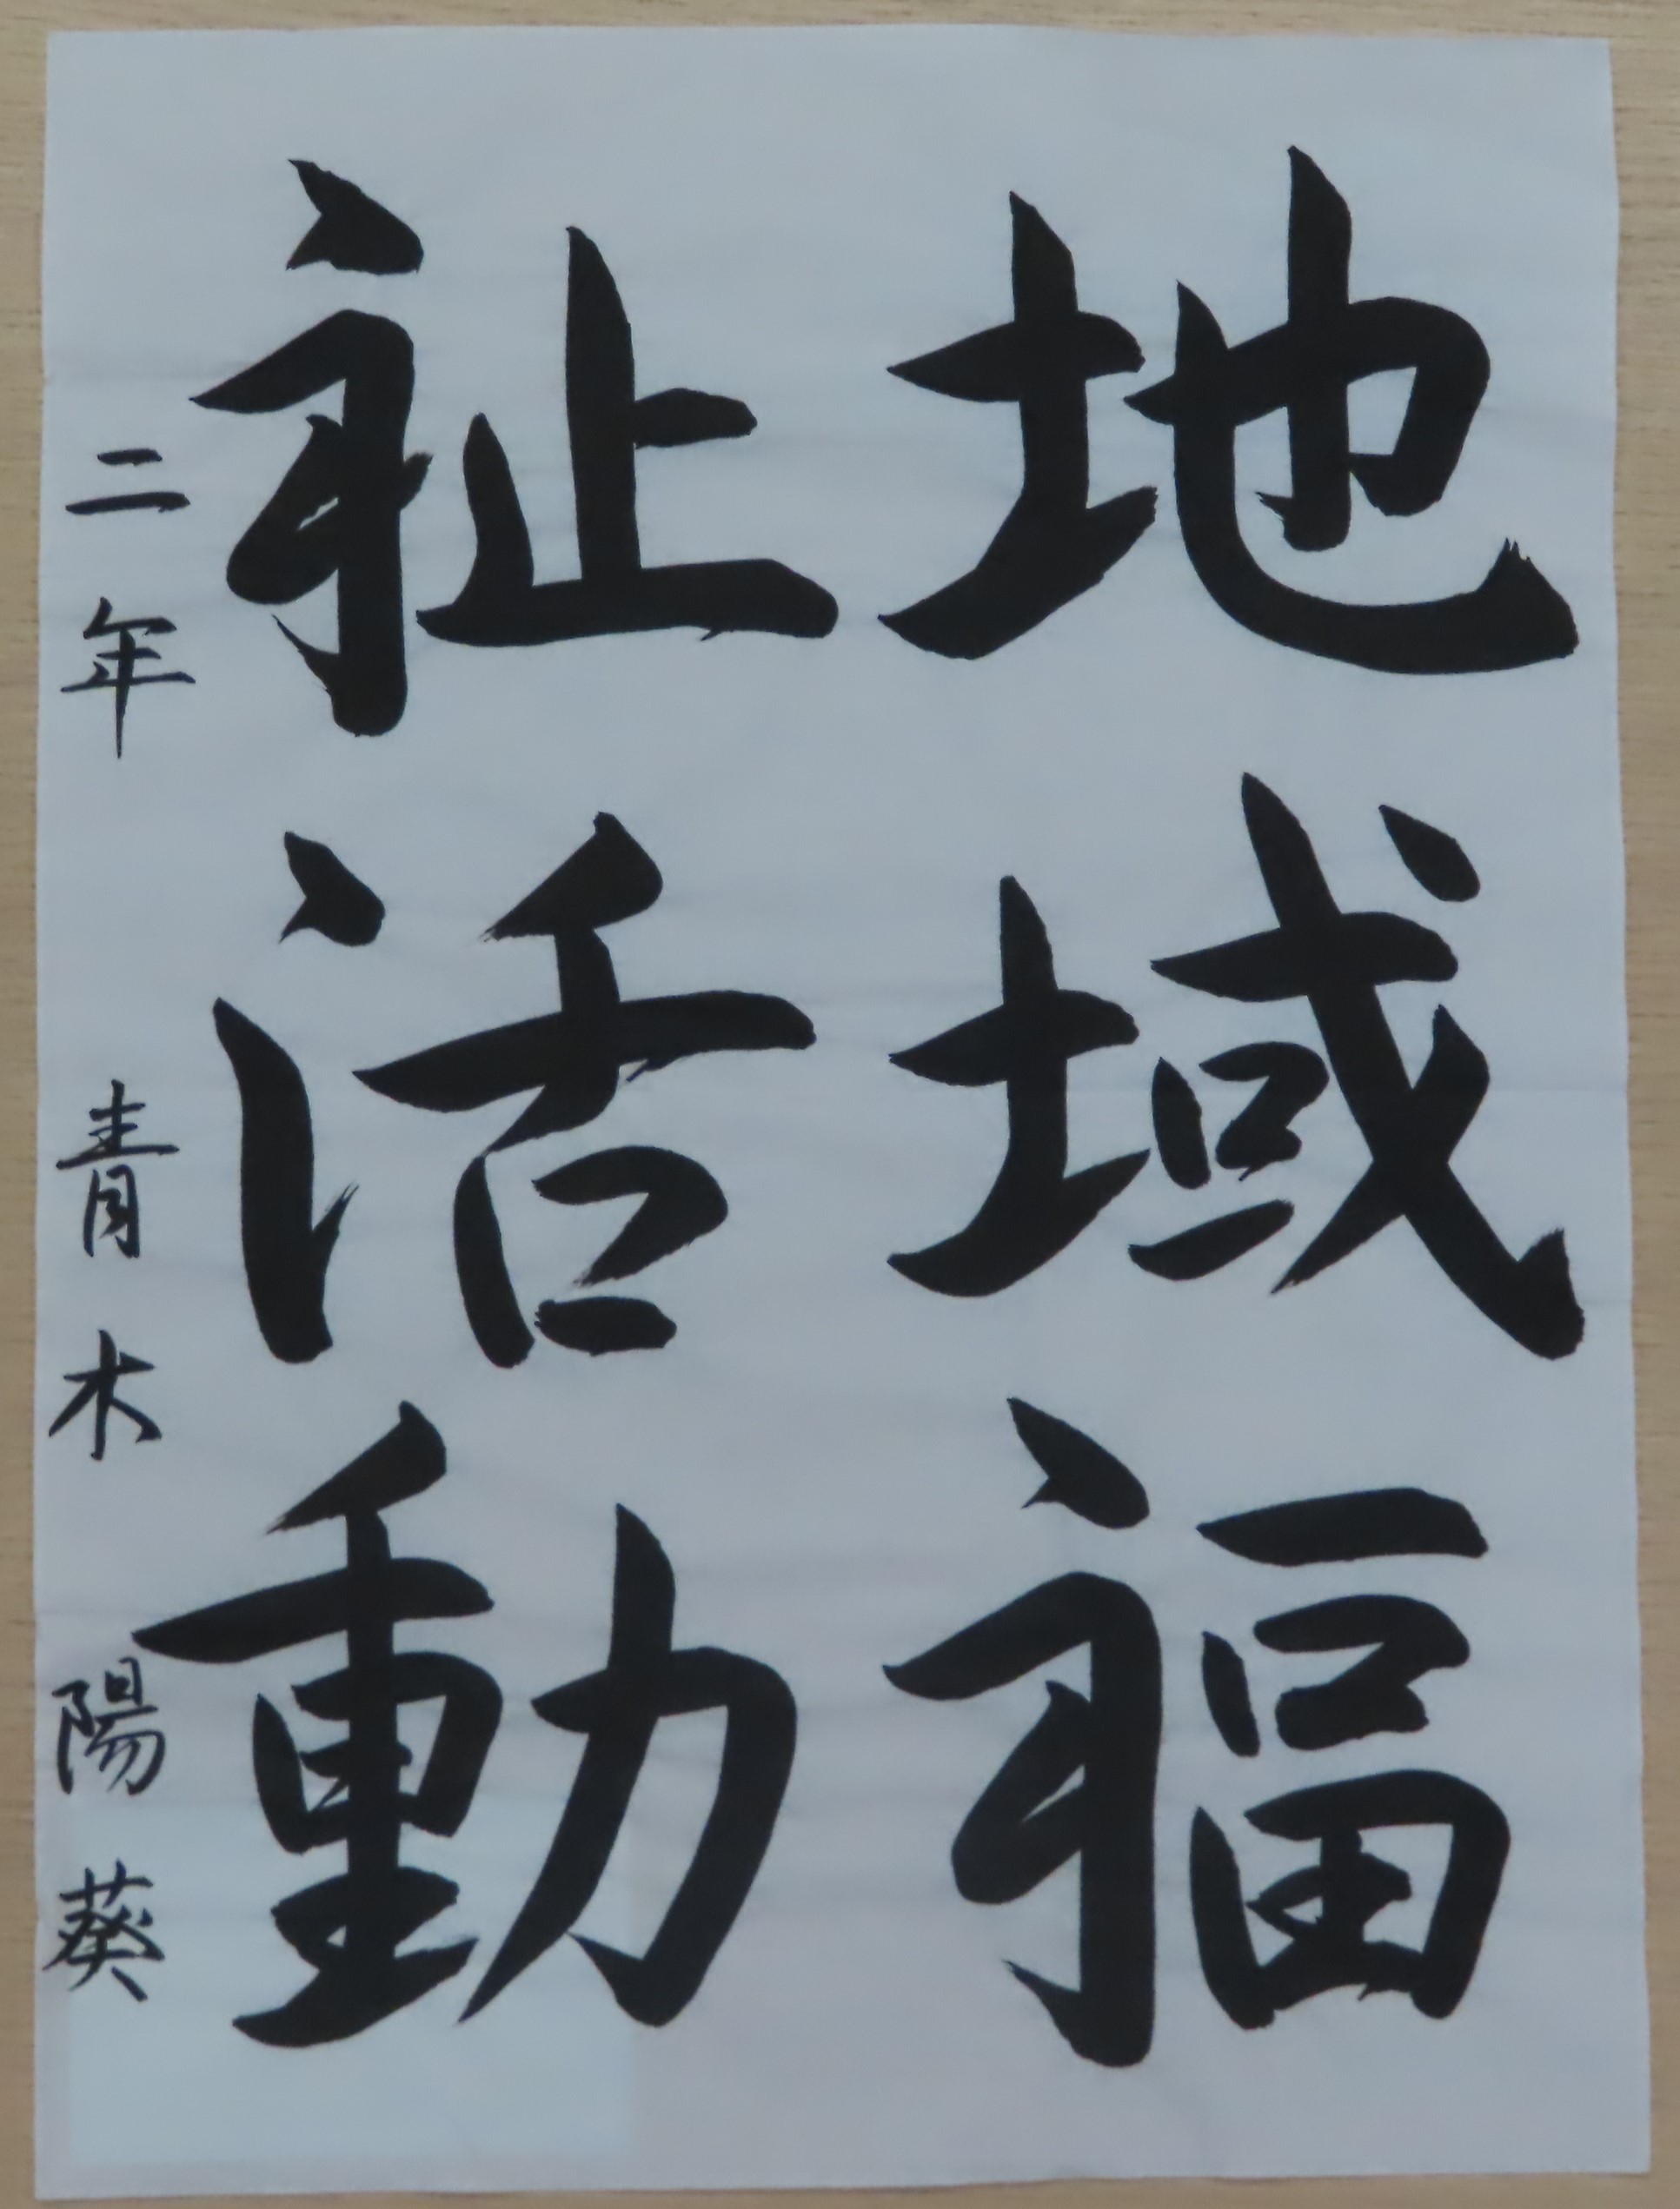 地域福
祉活動
二年 青木 陽葵